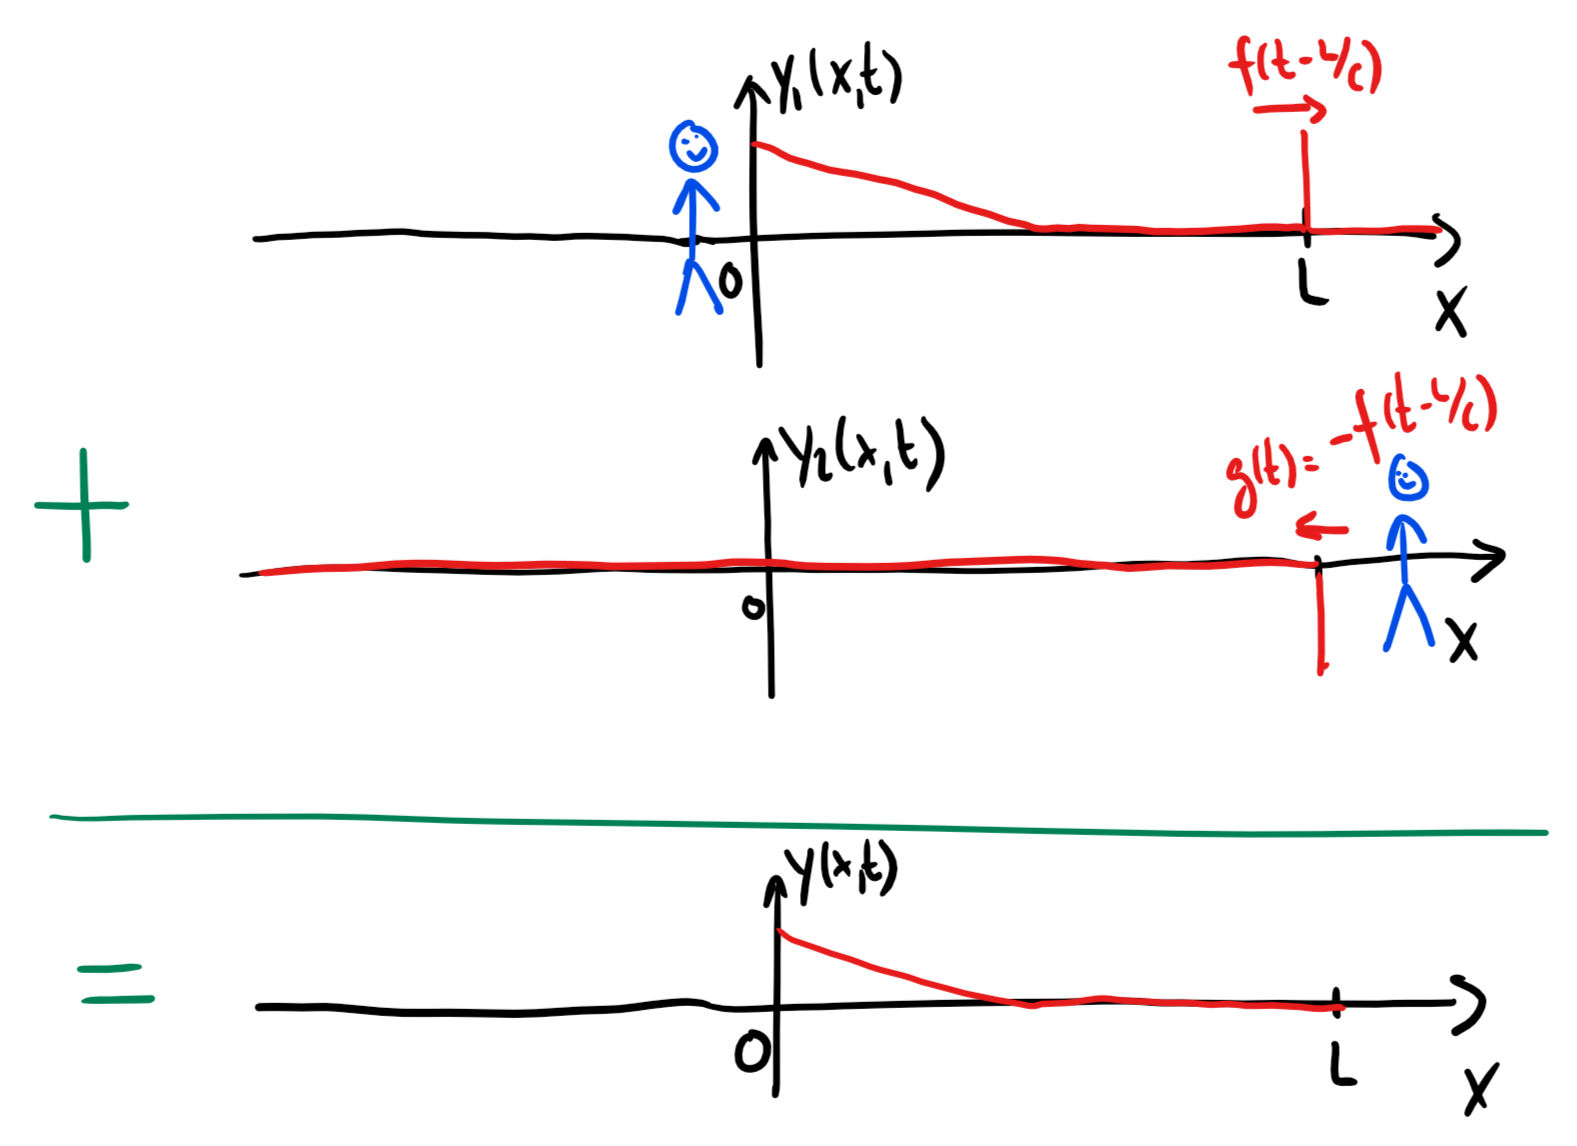 y₁(x,t)
f(t-L/c)
0
L
x
+
y₂(x,t)
g(t)= -f(t-L/c)
0
x
y(x,t)
=
0
L
x